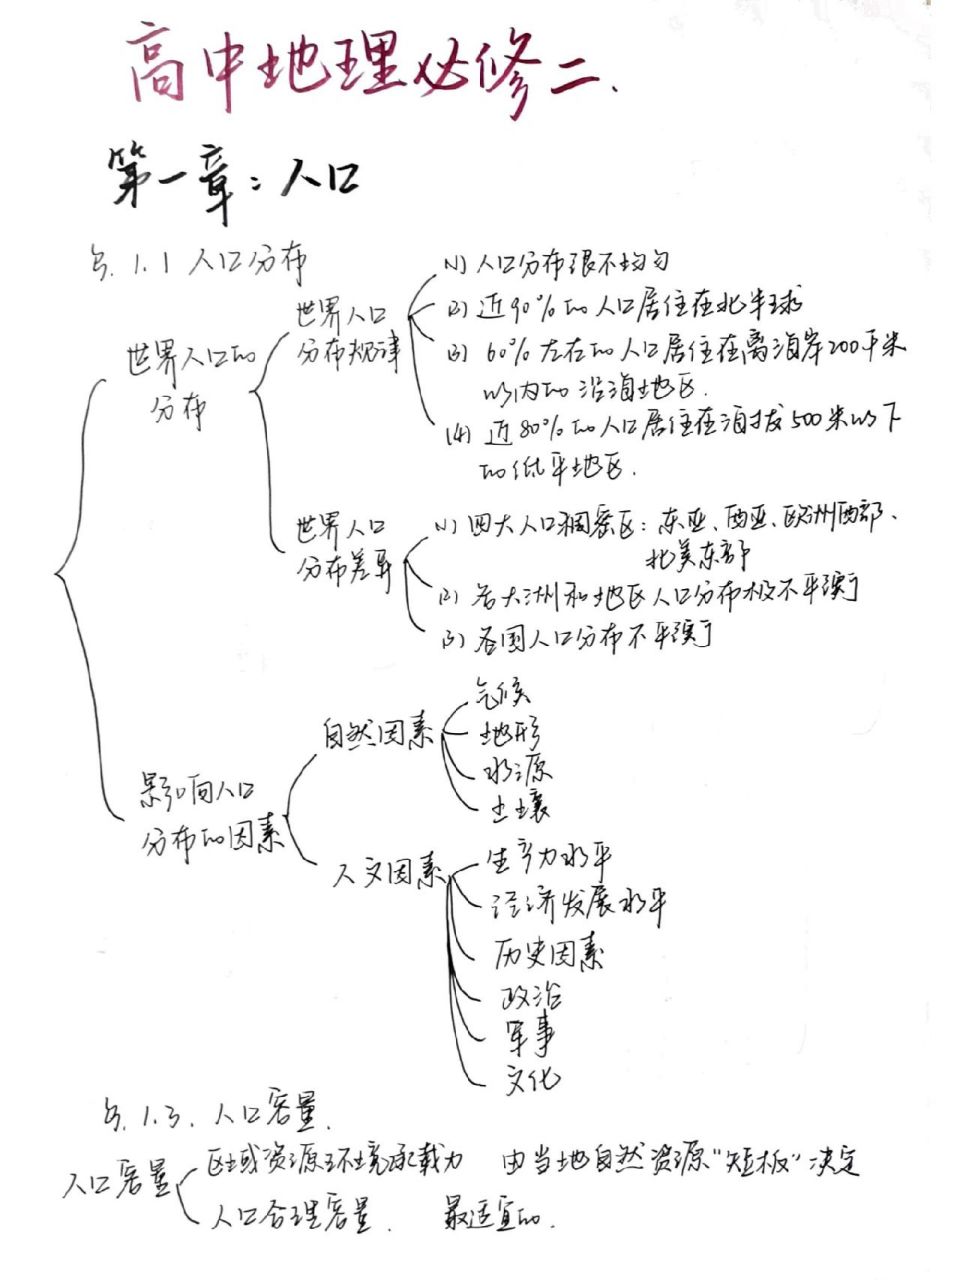 高中地理必修二.
第一章：人口
§.1.1 人口分布
世界人口的
分布
世界人口
分布规律
(1) 人口分布很不均匀
(2) 近90%的人口居住在北半球
(3) 60%左右的人口居住在离海岸200千米
以内的沿海地区.
(4) 近80%的人口居住在海拔500米以下
的低平地区.
世界人口
分布差异
(1) 四大人口稠密区：东亚、西亚、欧洲西部、
北美东部
(2) 各大洲和地区人口分布极不平衡
(3) 各国人口分布不平衡
影响人口
分布的因素
自然因素
气候
地形
水源
土壤
人文因素
生产力水平
经济发展水平
历史因素
政治
军事
文化
§.1.3.人口容量.
人口容量
区域资源环境承载力 由当地自然资源"短板"决定
人口合理容量. 最适宜的.